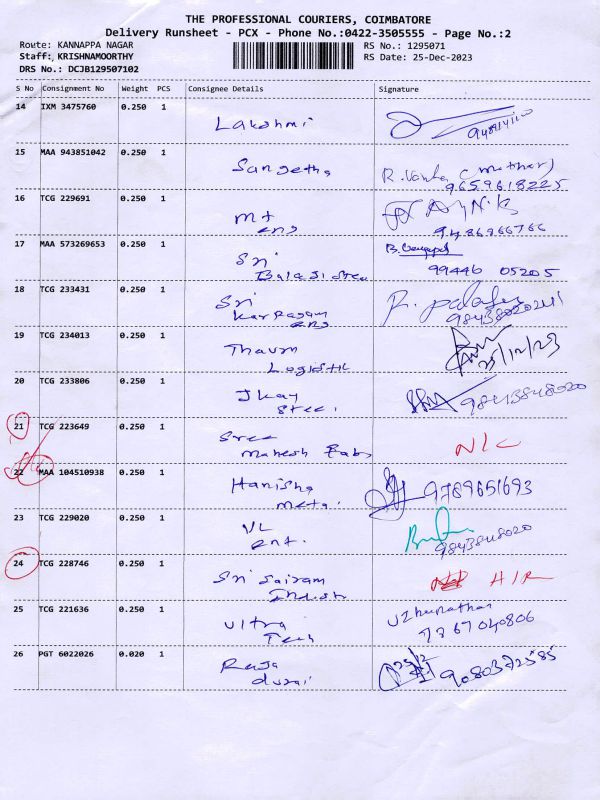 THE PROFESSIONAL COURIERS, COIMBATORE
Delivery Runsheet - PCX - Phone No.:0422-3505555 - Page No.:2
Route: KANNAPPA NAGAR
RS No.: 1295071
Staff: KRISHNAMOORTHY
RS Date: 25-Dec-2023
DRS No.: DCJB129507102
S No Consignment No Weight PCS Consignee Details Signature
14 IXM 3475760 0.250 1
Lakshmi
15 MAA 943851042 0.250 1
Sangeetha
9659618225
16 TCG 229691 0.250 1
mt
eng
9486966766
17 MAA 573269653 0.250 1
Sri
Balaji Stee
99446 05205
18 TCG 233431 0.250 1
Sri
eng
19 TCG 234013 0.250 1
25/12/23
20 TCG 233806 0.250 1
Jkay
Steel
9843848020
21 TCG 223649 0.250 1
Sree
Mahesh Fabs
N/C
22 MAA 104510938 0.250 1
Hanisha
metal
9789651693
23 TCG 229020 0.250 1
VL
ent.
9843848020
24 TCG 228746 0.250 1
Sri Sairam
25 TCG 221636 0.250 1
Ultra
Tech
7367040806
26 PGT 6022026 0.020 1
Raja
durai